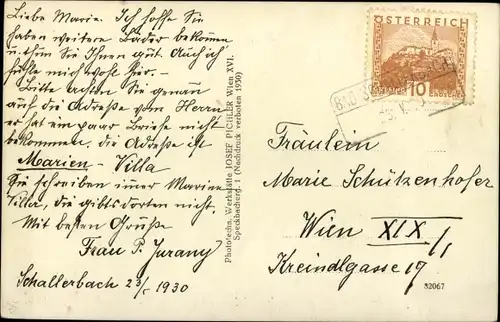 Liebe Marie. Ich hoffe Sie
haben weitere Bäder bekommen
u. thun Sie Ihnen gut. Auch ich
fühle mich wohl hier.-
Bitte achten Sie genau
auf die Adresse vom Herrn
er hat ein paar Briefe nicht
bekommen. die Adresse ist
Marien - Villa
Sie schreiben immer Marien
Villa, die gibts dorten nicht.
Mit besten Grüße
Frau P. Jurany
Schallerbach 23/5 1930
Phototechn. Werkstätte JOSEF PICHLER Wien XVI.
Speckbacherg. (Nachdruck verboten 1930)
ÖSTERREICH
10
Fräulein
Marie Schützenhofer
Wien XIX/1
Kreindlgasse 17
32067